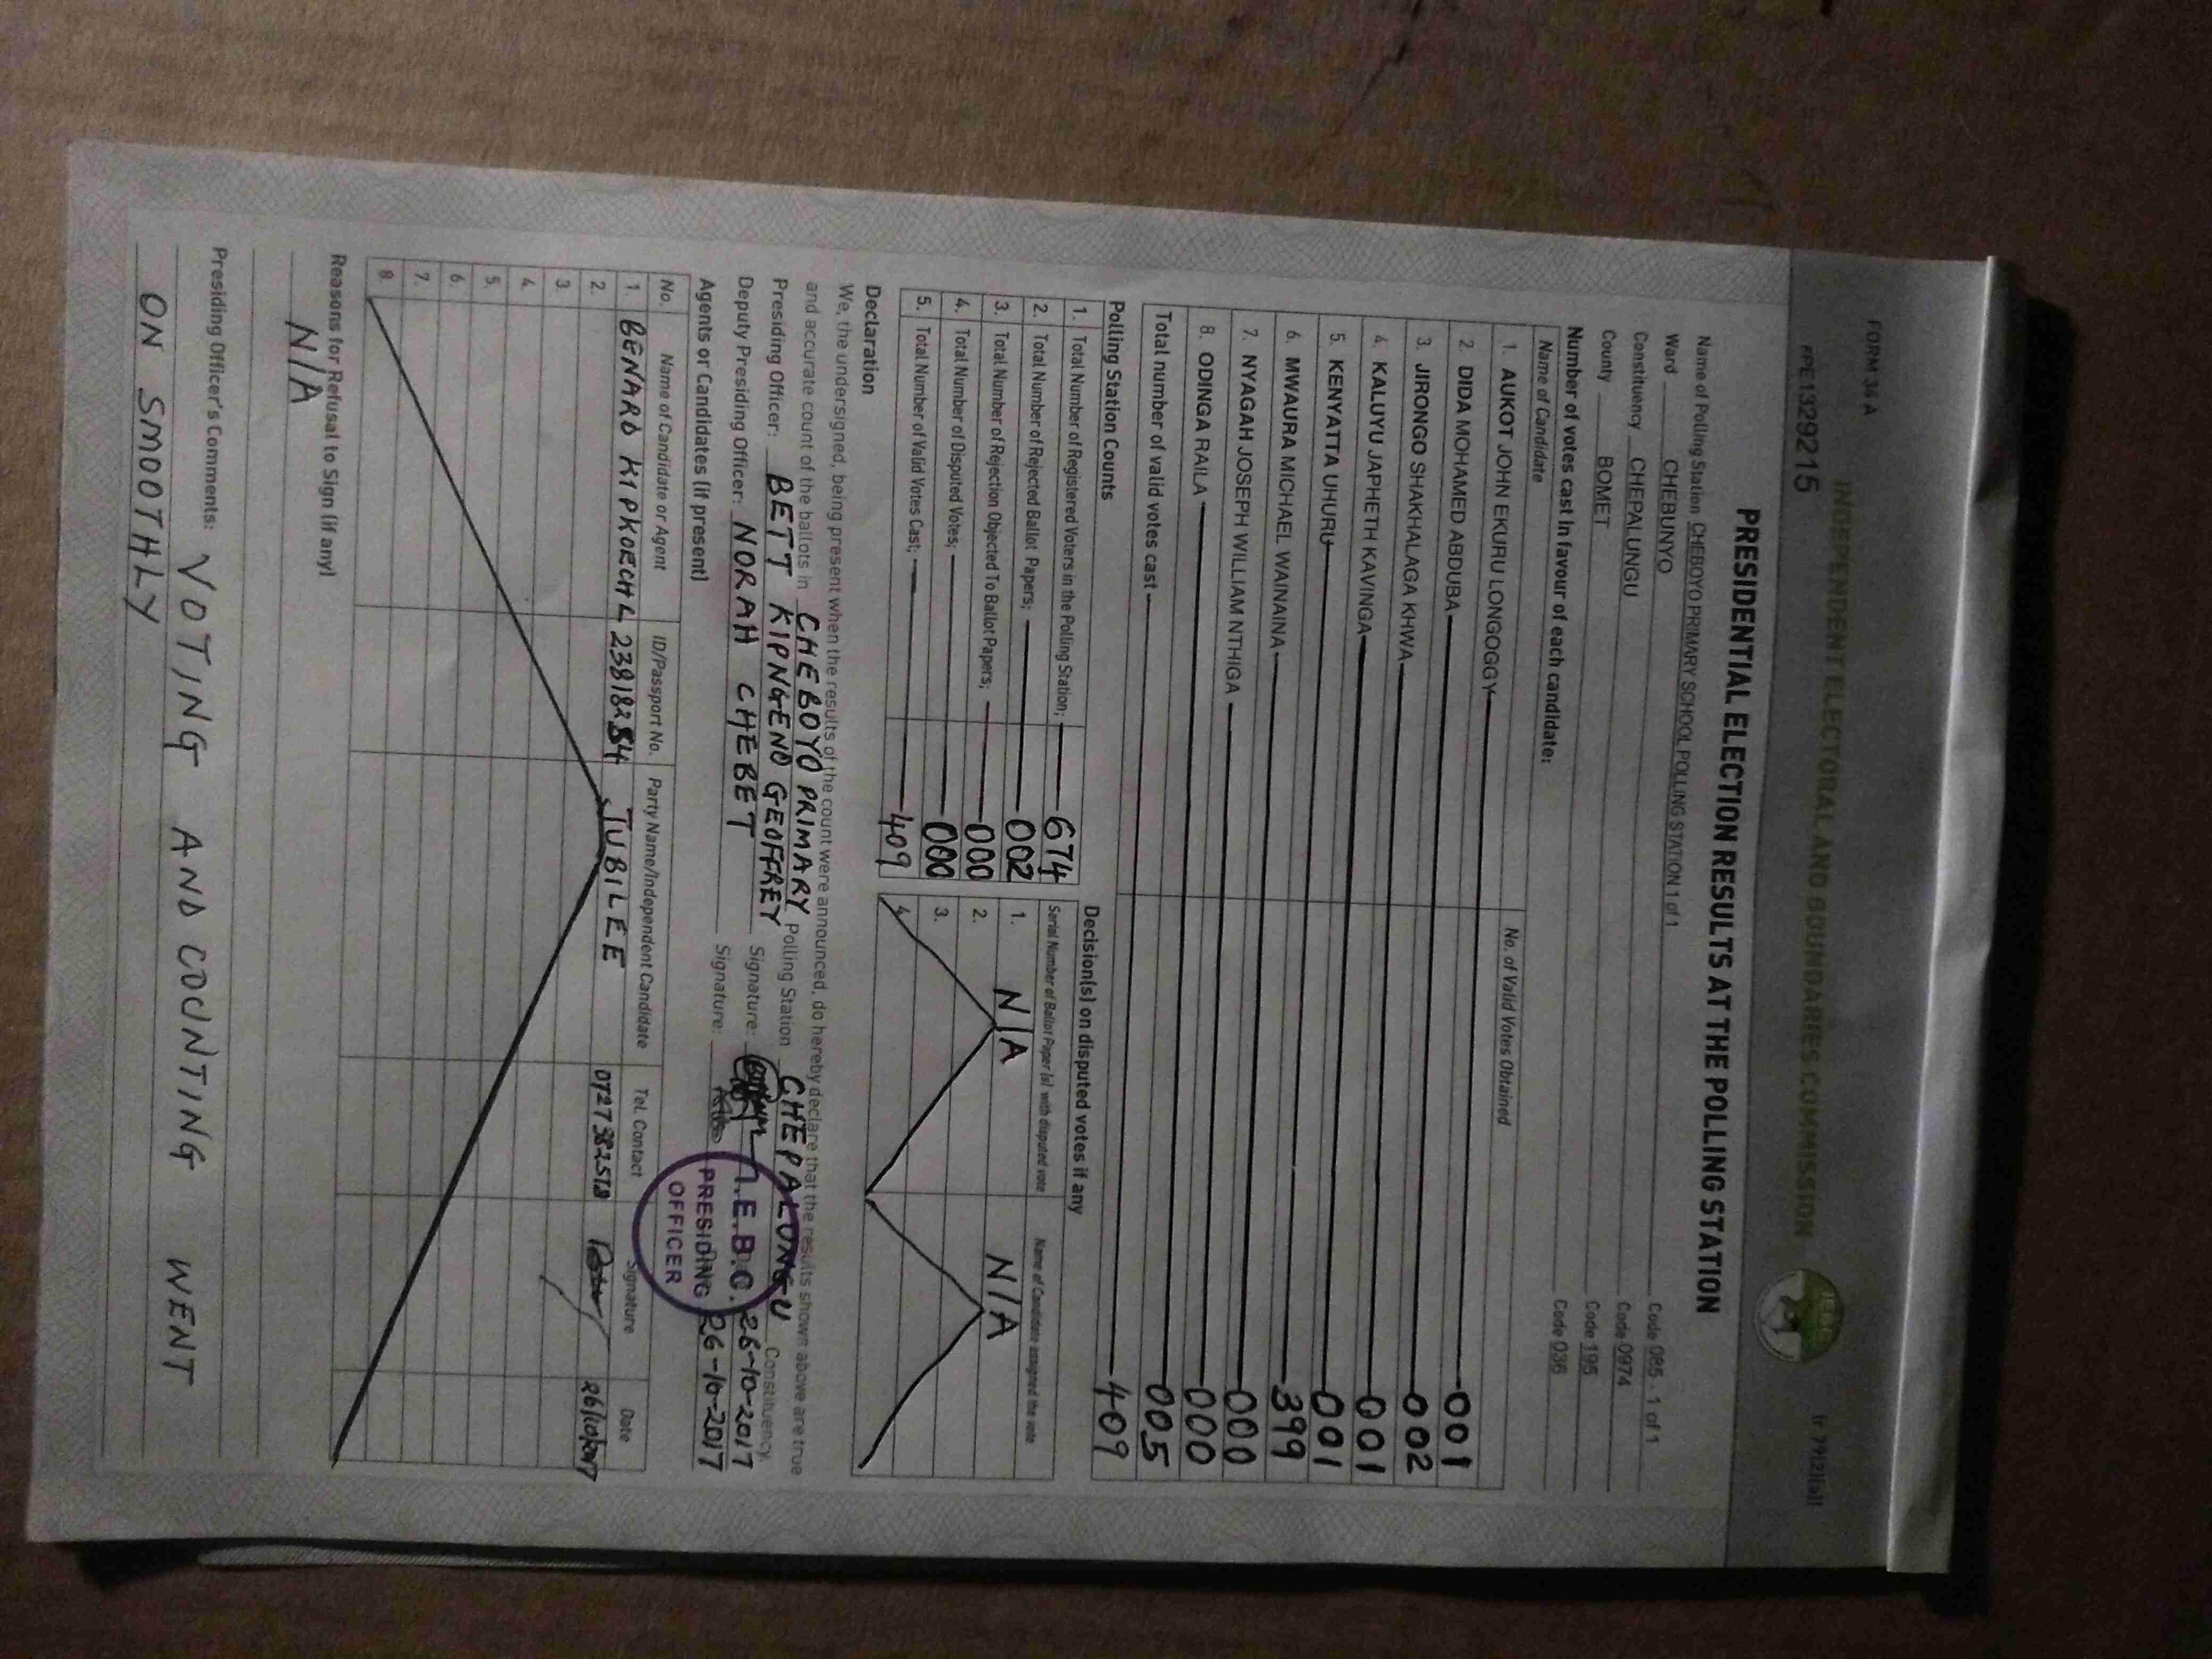 FORM 34 A (r 79(2)(a))
INDEPENDENT ELECTORAL AND BOUNDARIES COMMISSION
IEBC
PRESIDENTIAL ELECTION RESULTS AT THE POLLING STATION
Name of Polling Station CHEBOYO PRIMARY SCHOOL POLLING STATION 1 of 1 Code 085 - 1 of 1
Ward CHEBUNYO Code 0974
Constituency CHEPALUNGU Code 195
County BOMET Code 036
Number of votes cast in favour of each candidate:
Name of Candidate No. of Valid Votes Obtained
1. AUKOT JOHN EKURU LONGOGGY 001
2. DIDA MOHAMED ABDUBA 002
3. JIRONGO SHAKHALAGA KHWA 001
4. KALUYU JAPHETH KAVINGA 001
5. KENYATTA UHURU 399
6. MWAURA MICHAEL WAINAINA 000
7. NYAGAH JOSEPH WILLIAM NTHIGA 000
8. ODINGA RAILA 005
Total number of valid votes cast 409
Polling Station Counts
1. Total Number of Registered Voters in the Polling Station; 674
2. Total Number of Rejected Ballot Papers; 002
3. Total Number of Rejection Objected To Ballot Papers; 000
4. Total Number of Disputed Votes; 000
5. Total Number of Valid Votes Cast; 409
Decision(s) on disputed votes if any
Serial Number of Ballot Paper (s) with disputed vote Name of Candidate assigned the vote
1. N/A N/A
2.
3.
4.
Declaration
We, the undersigned, being present when the results of the count were announced, do hereby declare that the results shown above are true
and accurate count of the ballots in CHEBOYO PRIMARY Polling Station CHEPALUNGU Constituency
Presiding Officer: BETT KIPNGENO GEOFFREY Signature: 26-10-2017
Deputy Presiding Officer: NORAH CHEBET Signature: 26-10-2017
I.E.B.C.
PRESIDING
OFFICER
Agents or Candidates (if present)
No. Name of Candidate or Agent ID/Passport No. Party Name/Independent Candidate Tel. Contact Signature Date
1. BENARD KIPKOECH L 23818254 JUBILEE 26/10/2017
2.
3.
4.
5.
6.
7.
8.
Reasons for Refusal to Sign (if any)
N/A
Presiding Officer's Comments: VOTING AND COUNTING WENT
ON SMOOTHLY